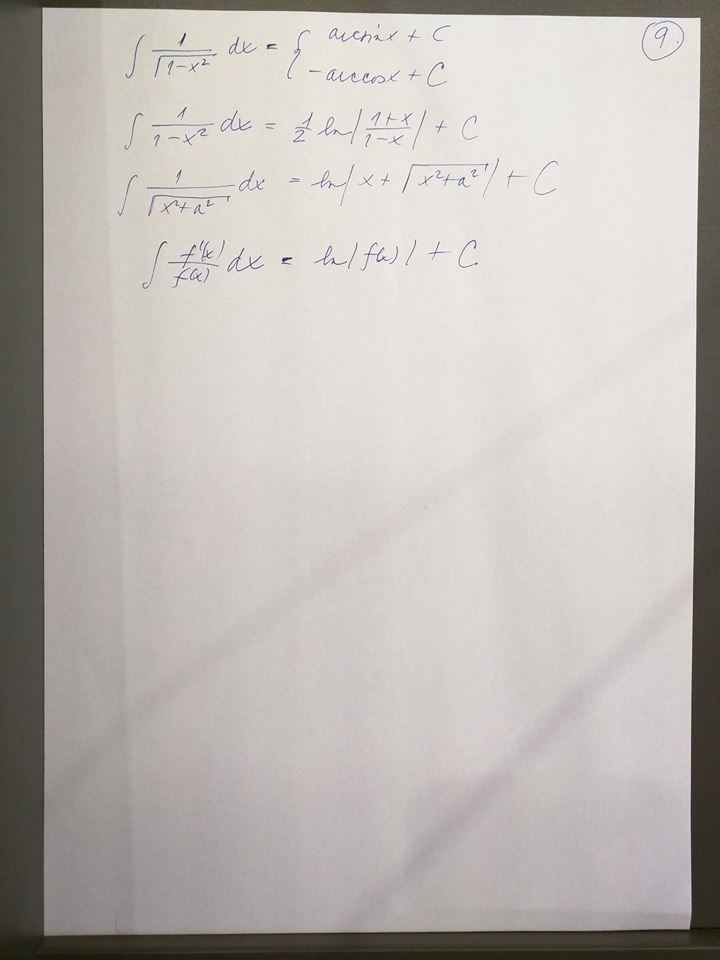 9.
∫ 1/√(1-x²) dx = { arcsin x + C
-arccos x + C
∫ 1/(1-x²) dx = 1/2 ln|(1+x)/(1-x)| + C
∫ 1/√(x²+a²) dx = ln|x + √(x²+a²)| + C
∫ f'(x)/f(x) dx = ln|f(x)| + C